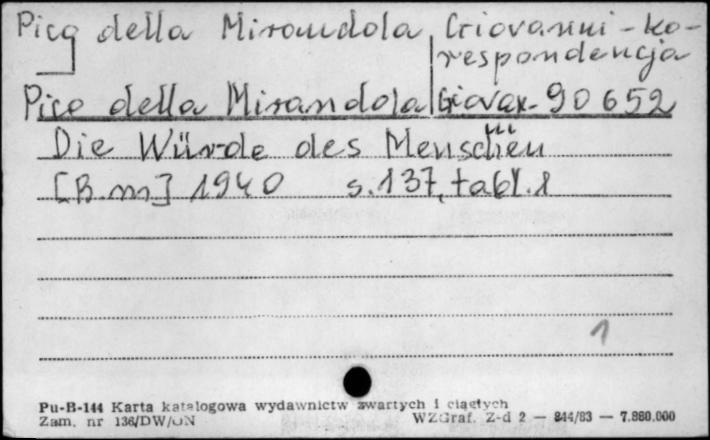 Pico della Mirandola, Giovanni - ko-
respondencja
Pico della Mirandola Giovan. 90652
Die Würde des Menschen
[B.m] 1940 s. 137, tabl. 1
1
Pu-B-144 Karta katalogowa wydawnictw zwartych i ciągłych
Zam. nr 136/DW/ON WZGraf. Z-d 2 — 844/83 — 7.880.000